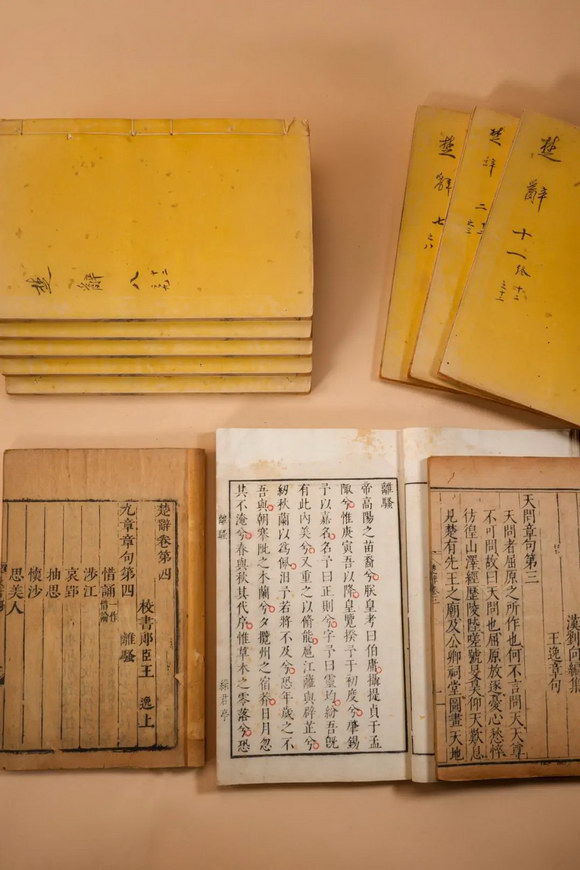 楚辭 八
楚辭 七
楚辞 二
楚辭 十一
楚辭卷第四
校書郎臣王 逸上
九章章句第四 離騷
惜誦一作惜論
涉江
哀郢
抽思
懷沙
思美人
離騷
帝高陽之苗裔兮朕皇考曰伯庸攝提貞于孟
陬兮惟庚寅吾以降皇覽揆予于初度兮肇錫
予以嘉名名予曰正則兮字予曰靈均紛吾既
有此內美兮又重之以脩能扈江離與辟芷兮
紉秋蘭以為佩汩予若將不及兮恐年歲之不
吾與朝搴阰之木蘭兮夕攬州之宿莽日月忽
其不淹兮春與秋其代序惟草木之零落兮恐
離騷
綠君亭
天問章句第三
漢劉向編集
王逸章句
天問者屈原之所作也何不言問天天尊
不可問故曰天問也屈原放逐憂心愁悴
彷徨山澤經歷陵陸嗟號旻昊仰天歎息
見楚有先王之廟及公卿祠堂圖畫天地